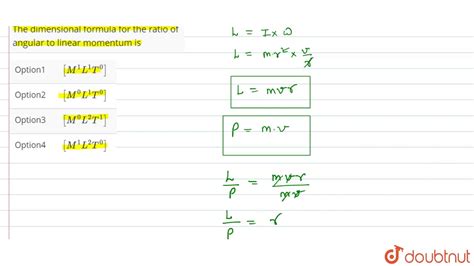 The dimensional formula for the ratio of
angular to linear momentum is
Option1 [M¹L¹T⁰]
Option2 [M⁰L¹T⁰]
Option3 [M⁰L²T¹]
Option4 [M¹L²T⁰]
L = I × ω
L = mr² × v/r
L = mvr
P = m.v
L/P = mvr/mv
L/P = r
doubtnut